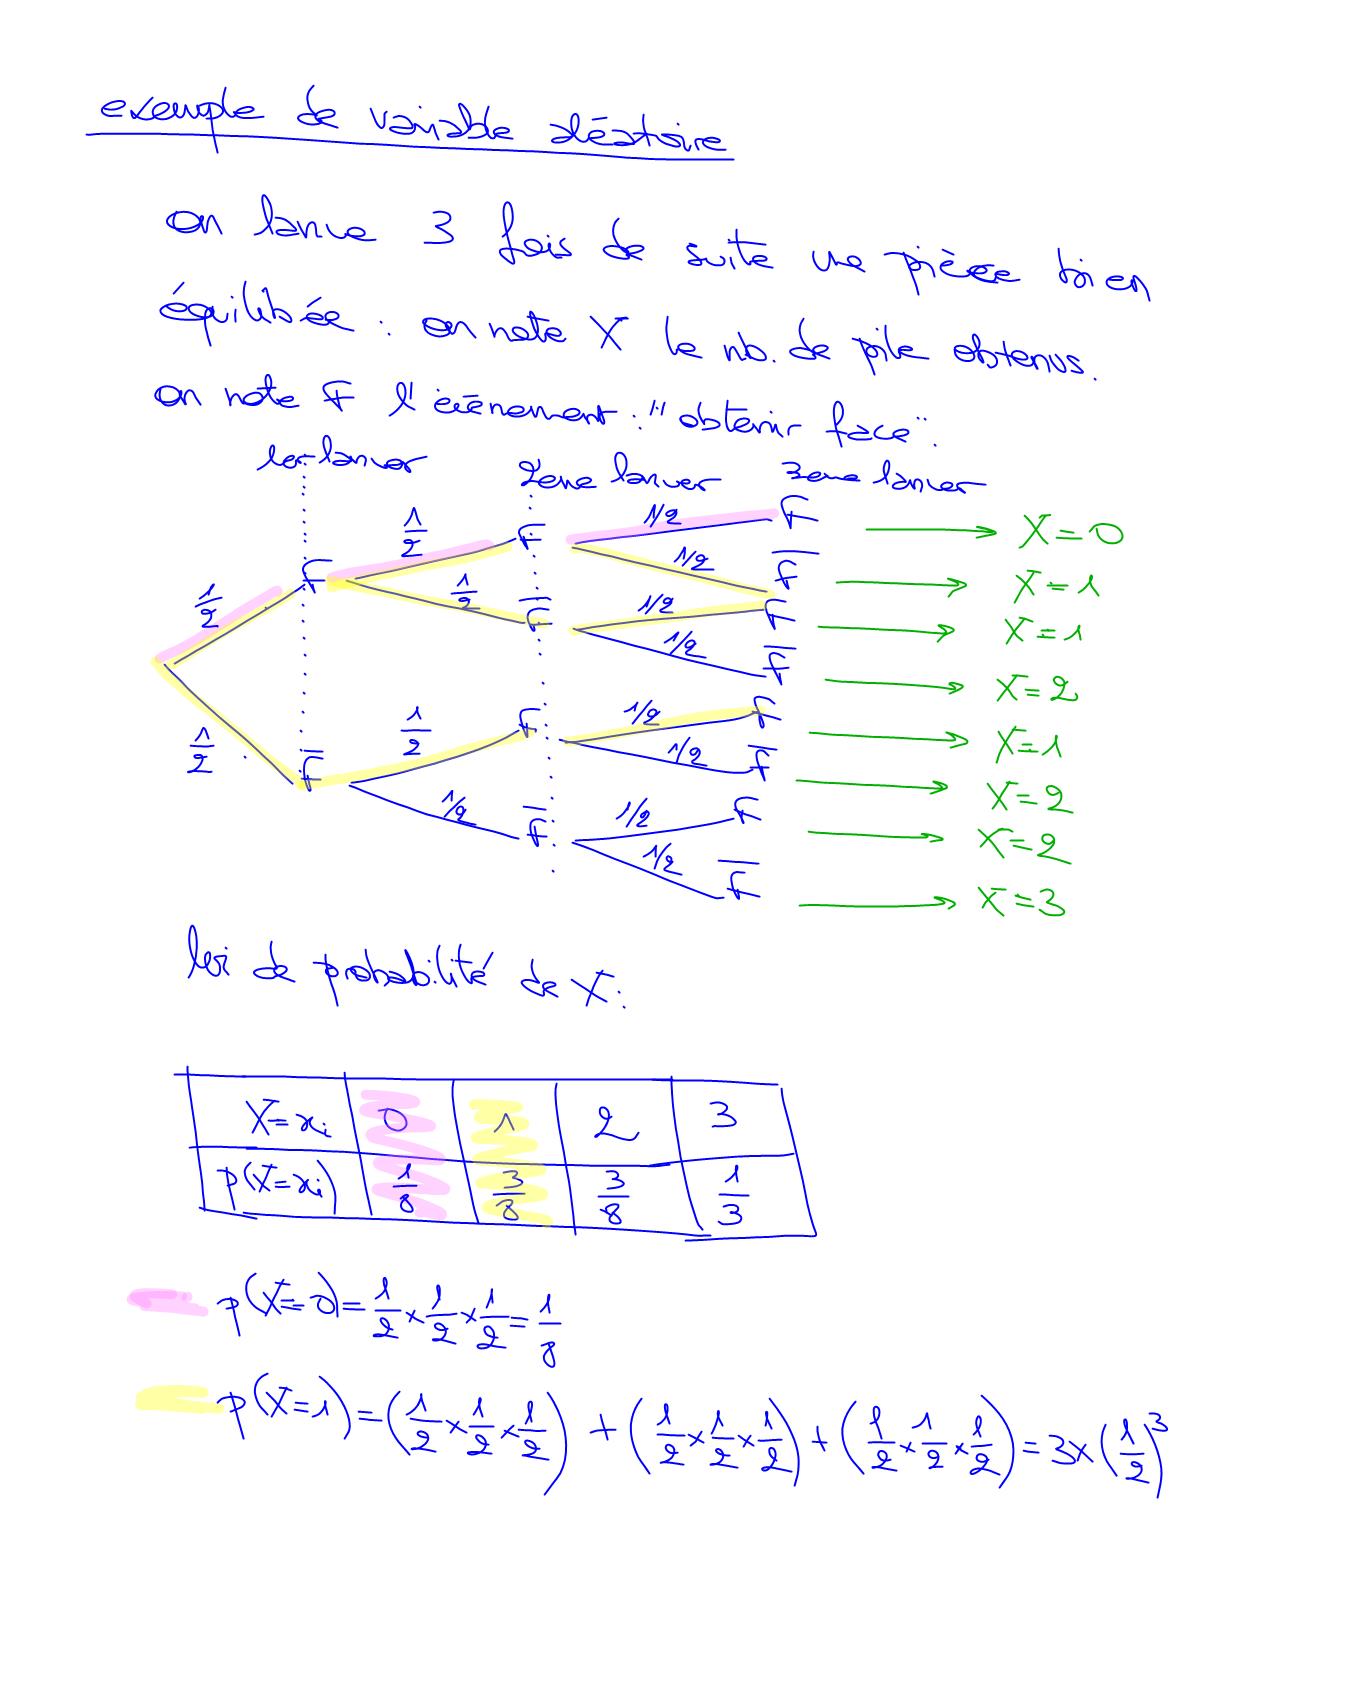 exemple de variable aléatoire
on lance 3 fois de suite une pièce bien
équilibée : on note X le nb. de pile obtenus.
on note F l'évènement : "obtenir face".
1er lancer 2ème lancer 3ème lancer
1/2 F 1/2 F 1/2 F → X = 0
1/2 F̅ → X = 1
1/2 F̅ 1/2 F → X = 1
1/2 F̅ → X = 2
1/2 F̅ 1/2 F 1/2 F → X = 1
1/2 F̅ → X = 2
1/2 F̅ 1/2 F → X = 2
1/2 F̅ → X = 3
loi de probabilité de X :
X = xi 0 1 2 3
p(X = xi) 1/8 3/8 3/8 1/3
p(X = 0) = 1/2 × 1/2 × 1/2 = 1/8
p(X = 1) = (1/2 × 1/2 × 1/2) + (1/2 × 1/2 × 1/2) + (1/2 × 1/2 × 1/2) = 3 × (1/2)³